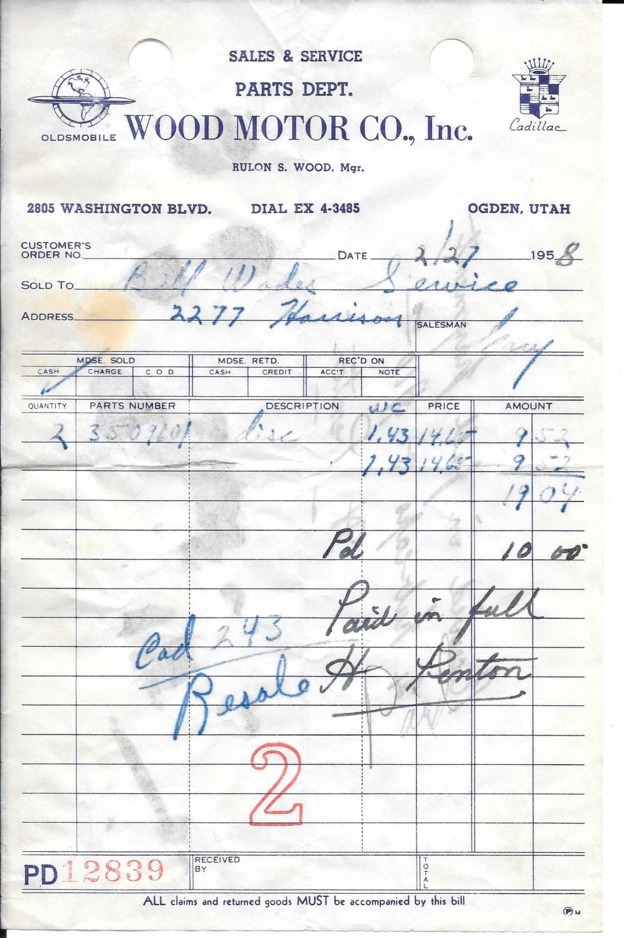 SALES & SERVICE
PARTS DEPT.
OLDSMOBILE WOOD MOTOR CO., Inc. Cadillac
RULON S. WOOD, Mgr.
2805 WASHINGTON BLVD. DIAL EX 4-3485 OGDEN, UTAH
CUSTOMER'S
ORDER NO. DATE 2/27 1958
SOLD TO Bill Wades Service
ADDRESS 2277 Harrison SALESMAN
MDSE. SOLD MDSE. RETD. REC'D ON
CASH CHARGE C O D CASH CREDIT ACC'T NOTE
QUANTITY PARTS NUMBER DESCRIPTION PRICE AMOUNT
2 disc 1.43 14.65 9 52
1.43 14.65 9 52
19 04
Pd 10 00
Paid in full
Cad 243
H Penton
Resale
2
PD 12839 RECEIVED
BY TOTAL
ALL claims and returned goods MUST be accompanied by this bill